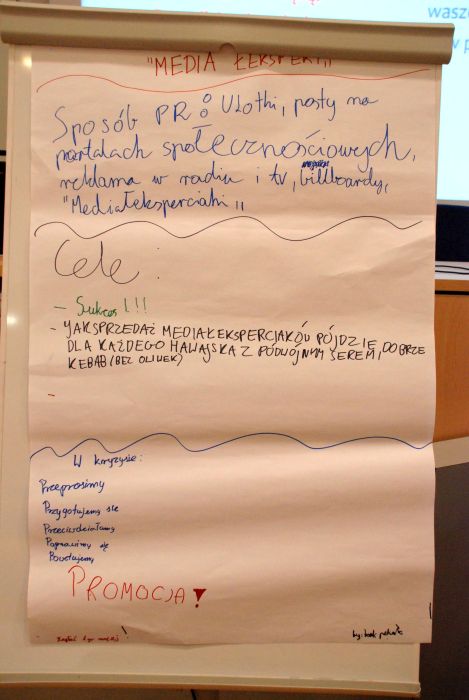 wasze
w p
"MEDIA ŁEKSPERT"
Sposób PR: Ulotki, posty na
portalach społecznościowych,
reklama w radiu i tv, billboardy,
"Mediałeksperciaki"
Cele:
- Sukces!!!
- JAK SPRZEDAŻ MEDIAŁEKSPERCIAKÓW PÓJDZIE DOBRZE
DLA KAŻDEGO HAWAJSKA Z PODWÓJNYM SEREM,
KEBAB (BEZ OLIWEK)
-
W kryzysie:
Przeprosimy
Przygotujemy się
Przeciwdziałamy
Poprawimy się
PROMOCJA!
by: